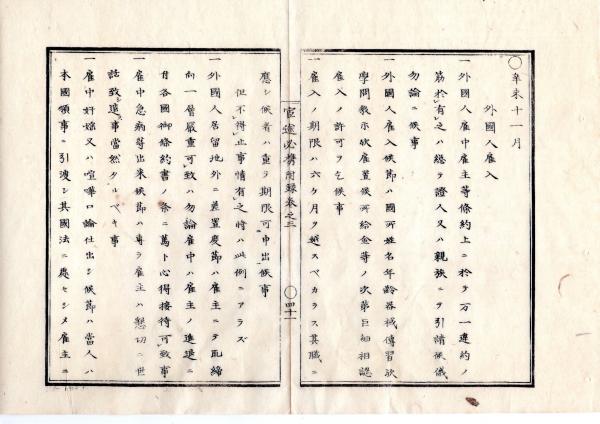 〇辛未十一月
外國人雇入
一 外國人雇中雇主等條約上ニ於テ万一違約ノ
筋於有之ハ總テ證人又ハ親族ニテ引請候儀
勿論ニ候事
一 外國人雇入候節ハ國所姓名年齡器械傳習欤
學問教示欤雇置候所給金等ノ次第巨細相認
雇入ノ許可ヲ乞候事
一 雇入ノ期限ハ六ケ月ヲ越スベカラス其職ニ
官途必携附録卷之三
〇四十一
應シ候者ハ重テ期限可申出候事
但不得止事情有之時ハ此例ニアラズ
一 外國人居留地外ニ差置度節ハ雇主ニテ取締
向一層嚴重可致ハ勿論雇中ハ雇主ノ進退ニ
付各國御條約書ノ条ニ篤ト心得接待可致事
一 雇中急病等出来候節ハ專ラ雇主ハ懇切ニ世
話致シ遣事當然タルベキ事
一 雇中奸婬又ハ喧嘩口論仕出シ候節ハ當人ハ
本國領事ニ引渡シ其國法ニ處セシメ雇主ニ